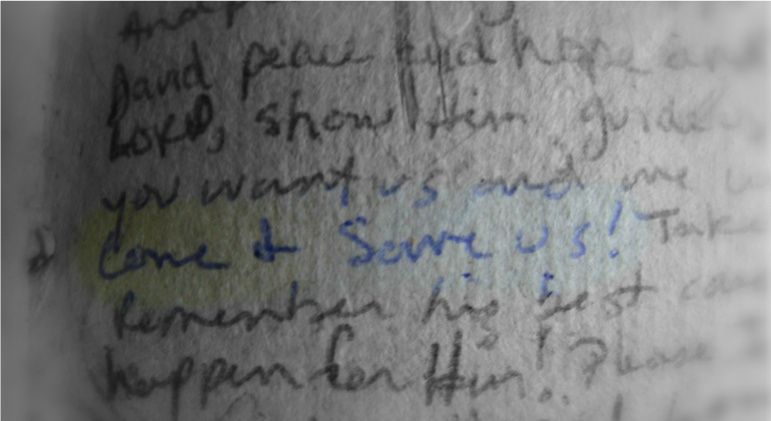 And
David peace and hope and
LORD, show Him guide
you want us and me
Come & Save us! Take
Remember his best
happen for Him! Please I